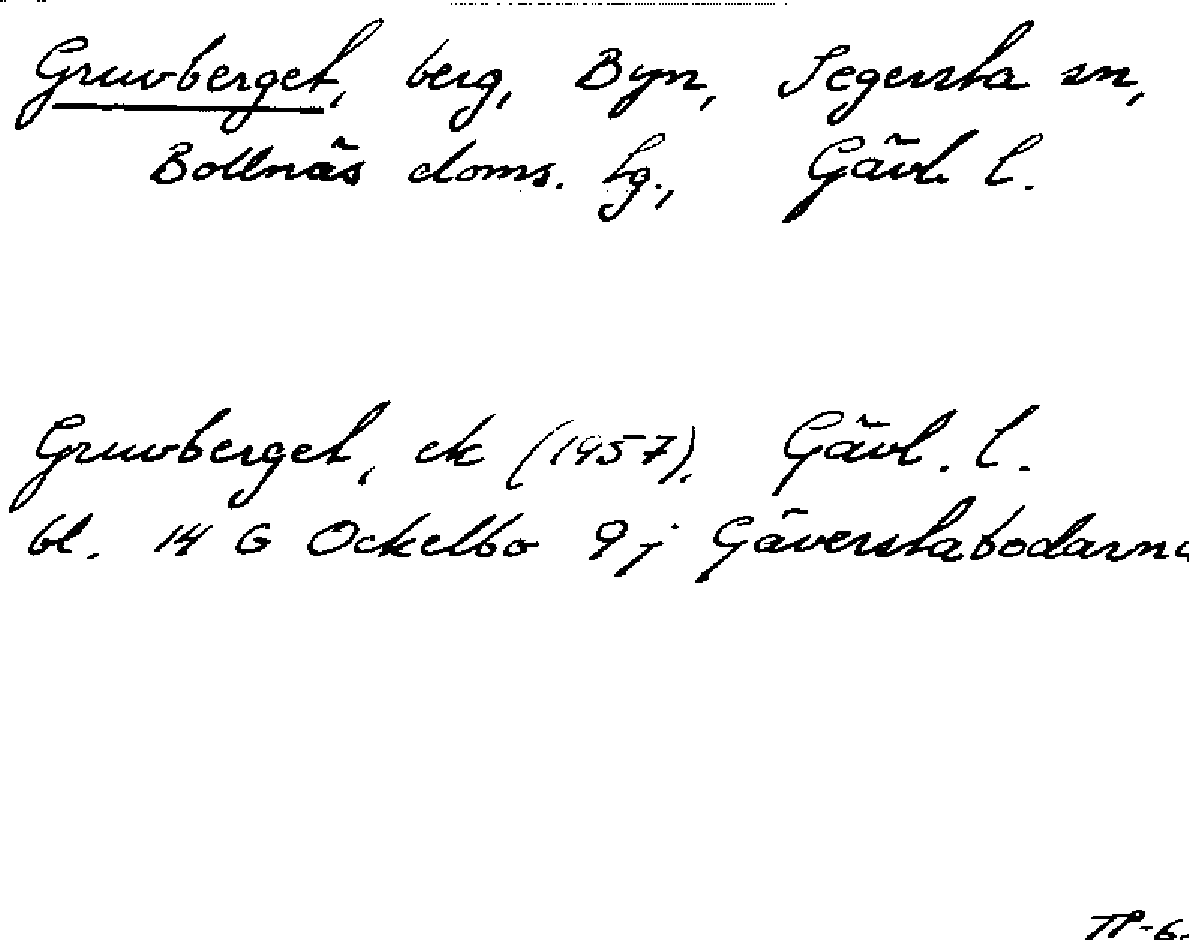 Gruvberget, berg, Byn, Segersta sn,
Bollnäs doms. lg., Gävl. l.
Gruvberget, ek (1957). Gävl. l.
bl. 14 G Ockelbo 9 j Gäverstabodarna
TP-6.